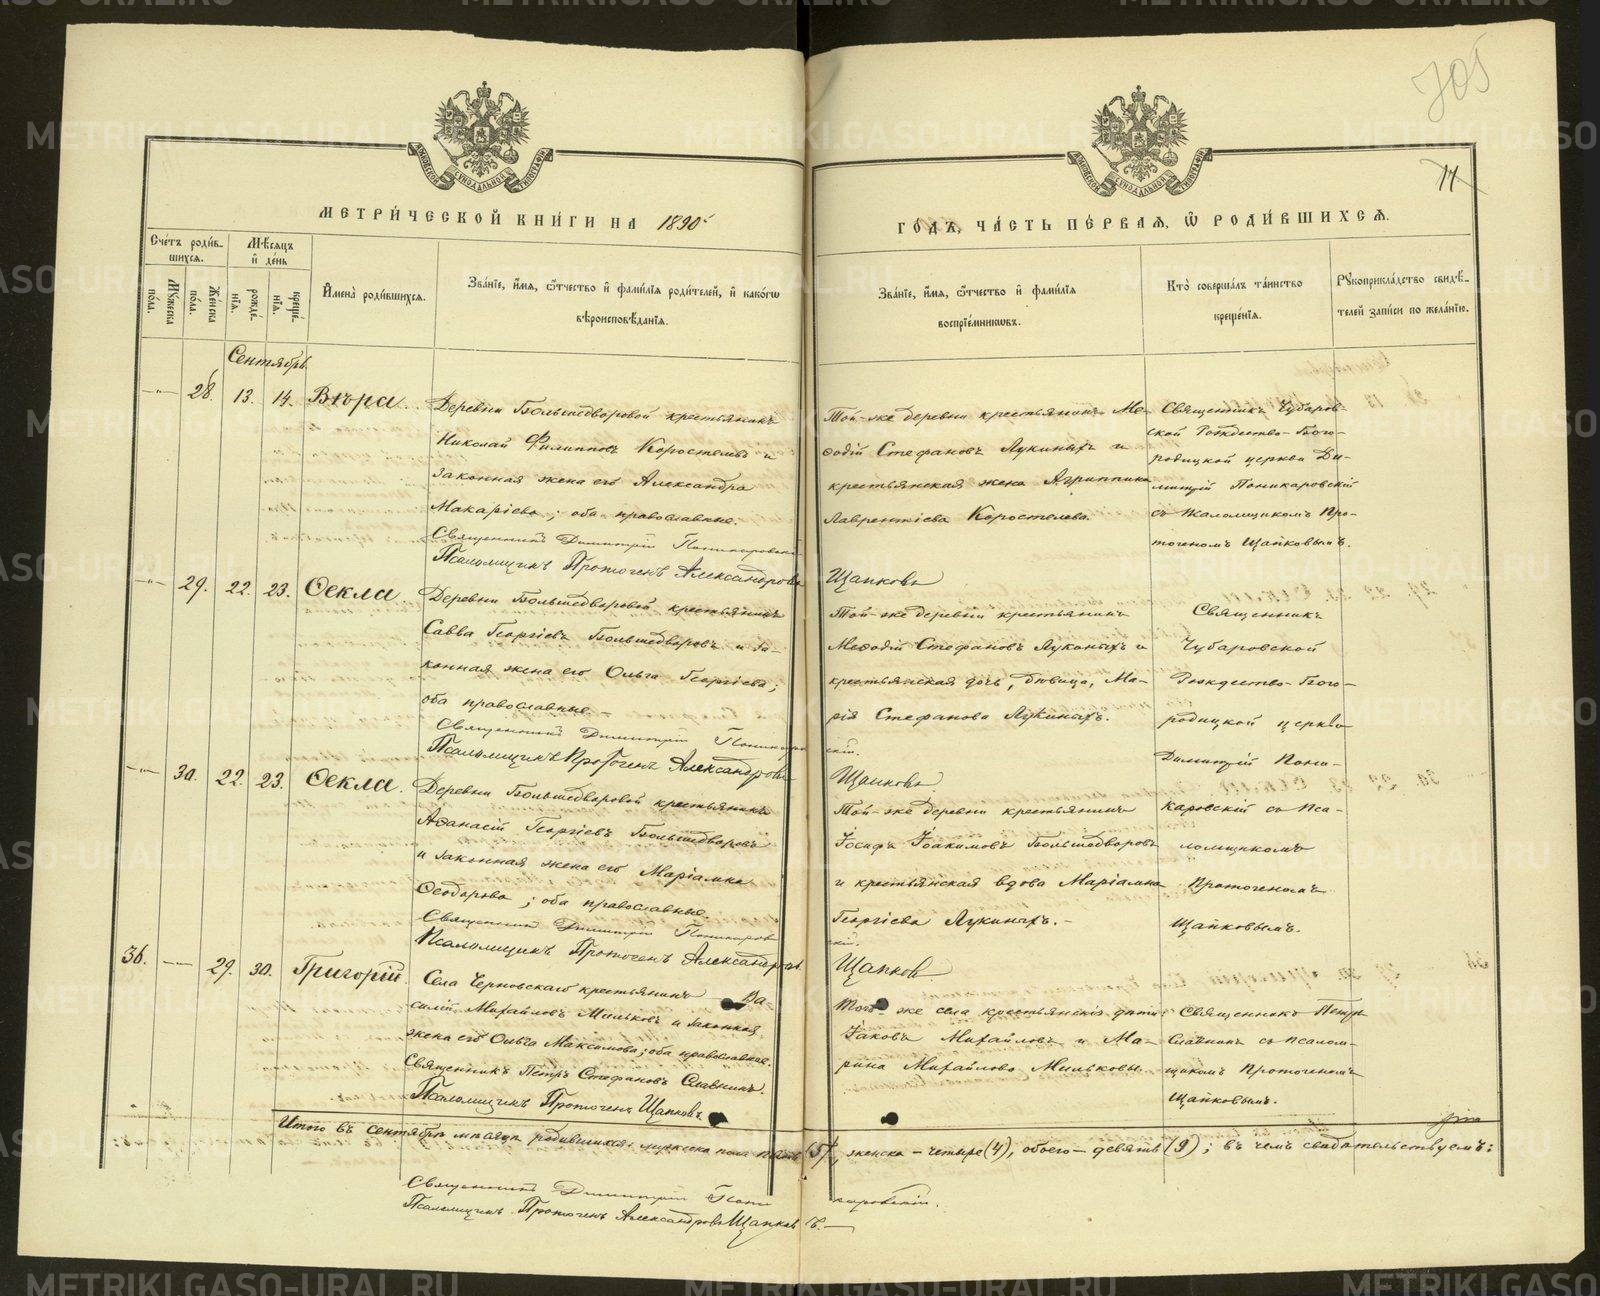 705
14
МЕТРИ́ЧЕСКОЙ КНИ́ГИ НА 1890
ГОДЪ, ЧА́СТЬ ПЕ́РВАЯ, Ѡ РОДИ́ВШИХСѦ.
Сче́тъ роди́в-
шихсѧ.
Мꙋ́жеска по́ла.
Же́нска по́ла.
Мѣ́сѧцъ
и де́нь
рожде́-
нїѧ.
креще́-
нїѧ.
Имена̀ роди́вшихсѧ.
Зва́нїе, и́мѧ, ѻ́тчество и фами́лїѧ роди́телей, и како́гѡ
вѣроисповѣ́данїѧ.
Зва́нїе, и́мѧ, ѻ́тчество и фами́лїѧ
воспрїе́мникѡвъ.
Кто̀ соверша́лъ та́инство
креще́нїѧ.
Рꙋкоприкла́дство свидѣ́-
телей за́писи по жела́нїю.
Сентябрь
28. 13. 14. Вѣра.
Деревни Большедворовой крестьянинъ
Николай Филипповъ Коростелевъ и
законная жена его Александра
Макаріева; оба православные.
Священникъ Димитрій Поникаровскій
Псаломщикъ Протогенъ Александровъ Щапковъ
Той-же деревни крестьянинъ Ме-
ѳодій Стефановъ Лукиныхъ и
крестьянская жена Агриппина
Лаврентіева Коростелева.
Священникъ Чубаров-
ской Рождество-Бого-
родицкой церкви Ди-
митрій Поникаровскій
съ псаломщикомъ Про-
тогеномъ Щапковымъ.
29. 22. 23. Ѳекла
Деревни Большедворовой крестьянинъ
Савва Георгіевъ Большедворовъ и за-
конная жена его Ольга Георгіева;
оба православные.
Священникъ Димитрій Поникаровскій.
Псаломщикъ Протогенъ Александровъ Щапковъ.
Той-же деревни крестьянинъ
Меѳодій Стефановъ Лукиныхъ и
крестьянская дочь, дѣвица, Ма-
рія Стефанова Лукиныхъ.
Священникъ
Чубаровской
Рождество-Бого-
родицкой церкви
Димитрій Пони-
каровскій съ пса-
ломщикомъ
Протогеномъ
Щапковымъ.
30. 22. 23. Ѳекла.
Деревни Большедворовой крестьянинъ
Аѳанасій Георгіевъ Большедворовъ
и законная жена его Маріамна
Ѳеодорова; оба православные.
Священникъ Димитрій Поникаровскій.
Псаломщикъ Протогенъ Александровъ Щапковъ
Той-же деревни крестьянинъ
Іосифъ Іоакимовъ Большедворовъ
и крестьянская вдова Маріамна
Георгіева Лукиныхъ.
36. 29. 30. Григорій.
Села Черновскаго крестьянинъ Ва-
силій Михайловъ Мильковъ и законная
жена его Ольга Максимова; оба православные.
Священникъ Петръ Стефановъ Славнинъ.
Псаломщикъ Протогенъ Щапковъ
Того же села крестьянскія дѣти:
Іаковъ Михайловъ и Ма-
рина Михайлова Мильковы.
Священникъ Петръ
Славнинъ съ псалом-
щикомъ Протогеномъ
Щапковымъ.
Итого въ сентябрѣ мѣсяцѣ родившихся: мужеска пола пять (5), женска – четыре (4), обоего – девять (9); въ чемъ свидѣтельствуемъ:
Священникъ Димитрій Поникаровскій.
Псаломщикъ Протогенъ Александровъ Щапковъ.
METRIKI.GASO-URAL.RU